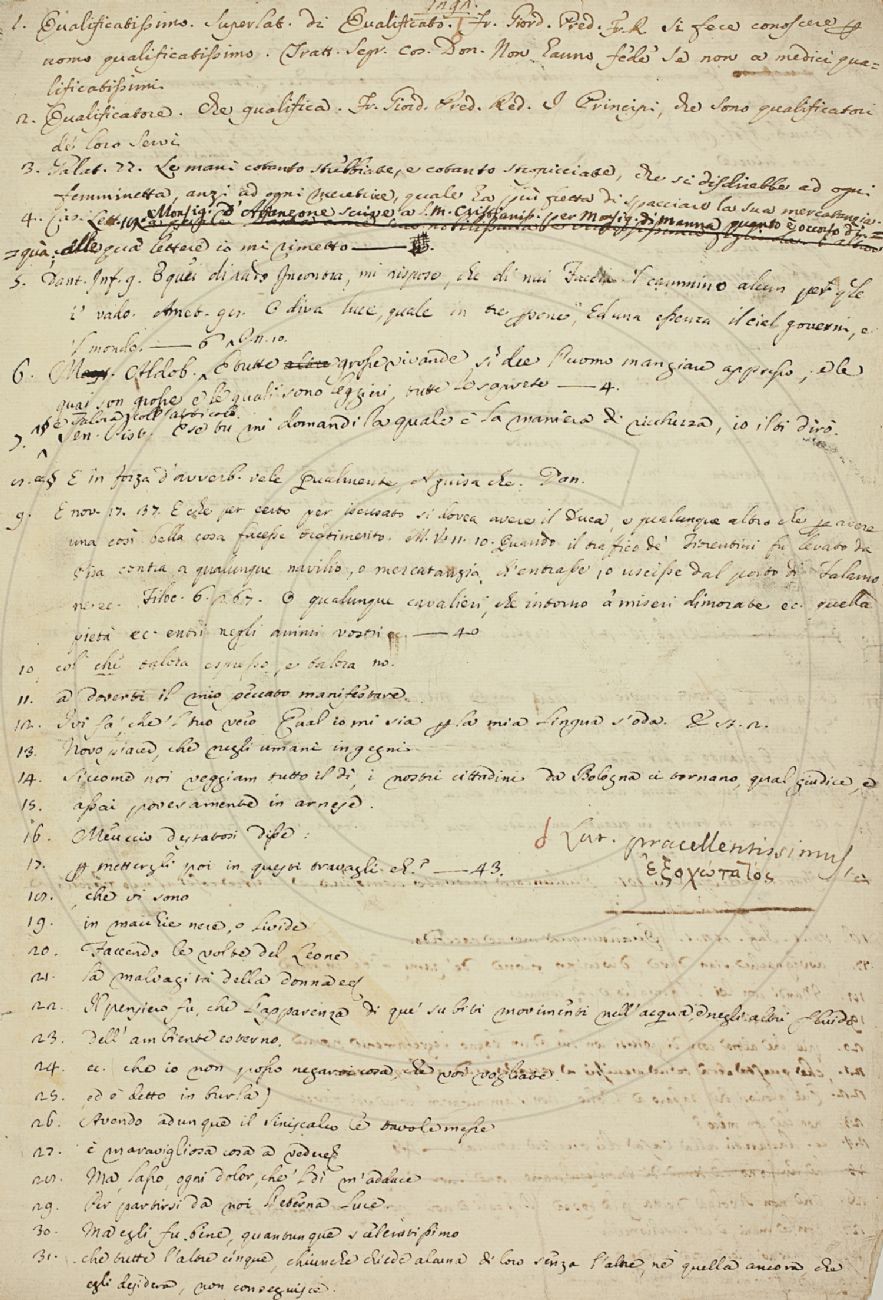 1. Qualificatissimo. Superlat. di Qualificato. Fr. Giord. Pred. Fr. R. Si fece conoscere
uomo qualificatissimo. Tratt. Segr. Cos. Don. Non hanno fede se non a medici qua=
lificatissimi.
2. Qualificatore. Che qualifica. Fr. Giord. Pred. Red. I Principi, che sono qualificatori
de' loro servi.
3. Galat. 77. Le mani cotanto stribbiate, e cotanto stropicciate, che si disdirebbe ad ogni
femminetta, anzi ad ogni meretrice, quale ha più fretta di spacciare la sua mercatanzia.
4. Cas. Lett. Monsig. d'Avanzone scrive a S. M. Cristianiss. per Monsig. di Manna quanto è occorso di=
=quà, alle qua' lettere io mi rimetto
5. Dant. Inf. 9. E quei di rado Incontra, mi rispose, che di nui Faccia il cammino alcun per qle
i' vado. Amet. O diva luce, quale in tre persone, Ed una essenza il ciel governi, e
il mondo. — 6
6. Aldob. E tutte grosse vivande, si dee l'uomo mangiare appresso, e le
quai son grosse e le quali sono leggieri, tutte le saprete — 4.
E talora coll'articolo.
7. Sen. Pist. E se tu mi domandi la quale è la maniera di ricchezza, io il ti dirò.
8. E in forza d'avverb. vale Qualmente, A guisa che. Dan.
9. E nov. 17. 137. E che per certo per iscusato si dovea avere il Duca, e qualunque altro che avere
una così bella cosa facesse tradimento. M. V. 11. 10. Quando il traffico de' Fiorentini fu levato da
Pisa contra a qualunque navilio, o mercatanzia, ch'entrasse, o uscisse dal porto di Talamo
ne ec. Filoc. 6. 67. O qualunque cavalieri, che intorno a' miseri dimorate ec. quella
pietà ec. entri negli animi vostri ec. — 40
10. col che talora espresso, e talora no.
11. a doverti il mio peccato manifestare.
12. Ivi fa', che 'l tuo vero Qual io mi sia la mia lingua s'oda. E 54. 2.
13. Novo piacer, che negli umani ingegni.
14. Siccome noi veggiam tutto il dì, i nostri cittadini da Bologna ci tornano, qual giudice, e
15. assai poveramente in arnese.
16. Meuccio destatosi disse:
Lat. praecellentissimus
ἐξοχώτατος
17. mettergli poi in questi travagli eh? — 43.
18. che vi sono
19. in macchie nere, o livide
20. Faccendo le volte del Leone
21. la malvagità della donna ec.
22. Il pensiero fu, che l'apparenza di que' subiti movimenti nell'acqua, e negli altri fluidi
23. dell'ambiente esterno.
24. ec. che io non posso negar cosa, che voi vogliate.
25. ed è detto in burla)
26. Avendo adunque il siniscalco le tavole messe
27. è maravigliosa cosa a vedere
28. Ma, lasso, ogni dolor, che 'l dì m'adduce
29. Per partirsi da noi l'eterna luce.
30. Ma egli fu bene, quantunque scelleratissimo
31. che tutte l'altre cinque, chiunche chiede alcuna di loro senza l'altre, nè quella ancora, che
egli desidera, non conseguisce.